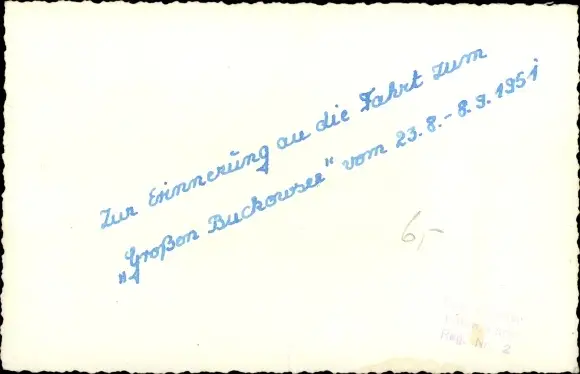 Zur Erinnerung an die Fahrt zum
„Großen Buckowsee" vom 23.8.-8.9.1951
6,-
Reg. Nr. 2